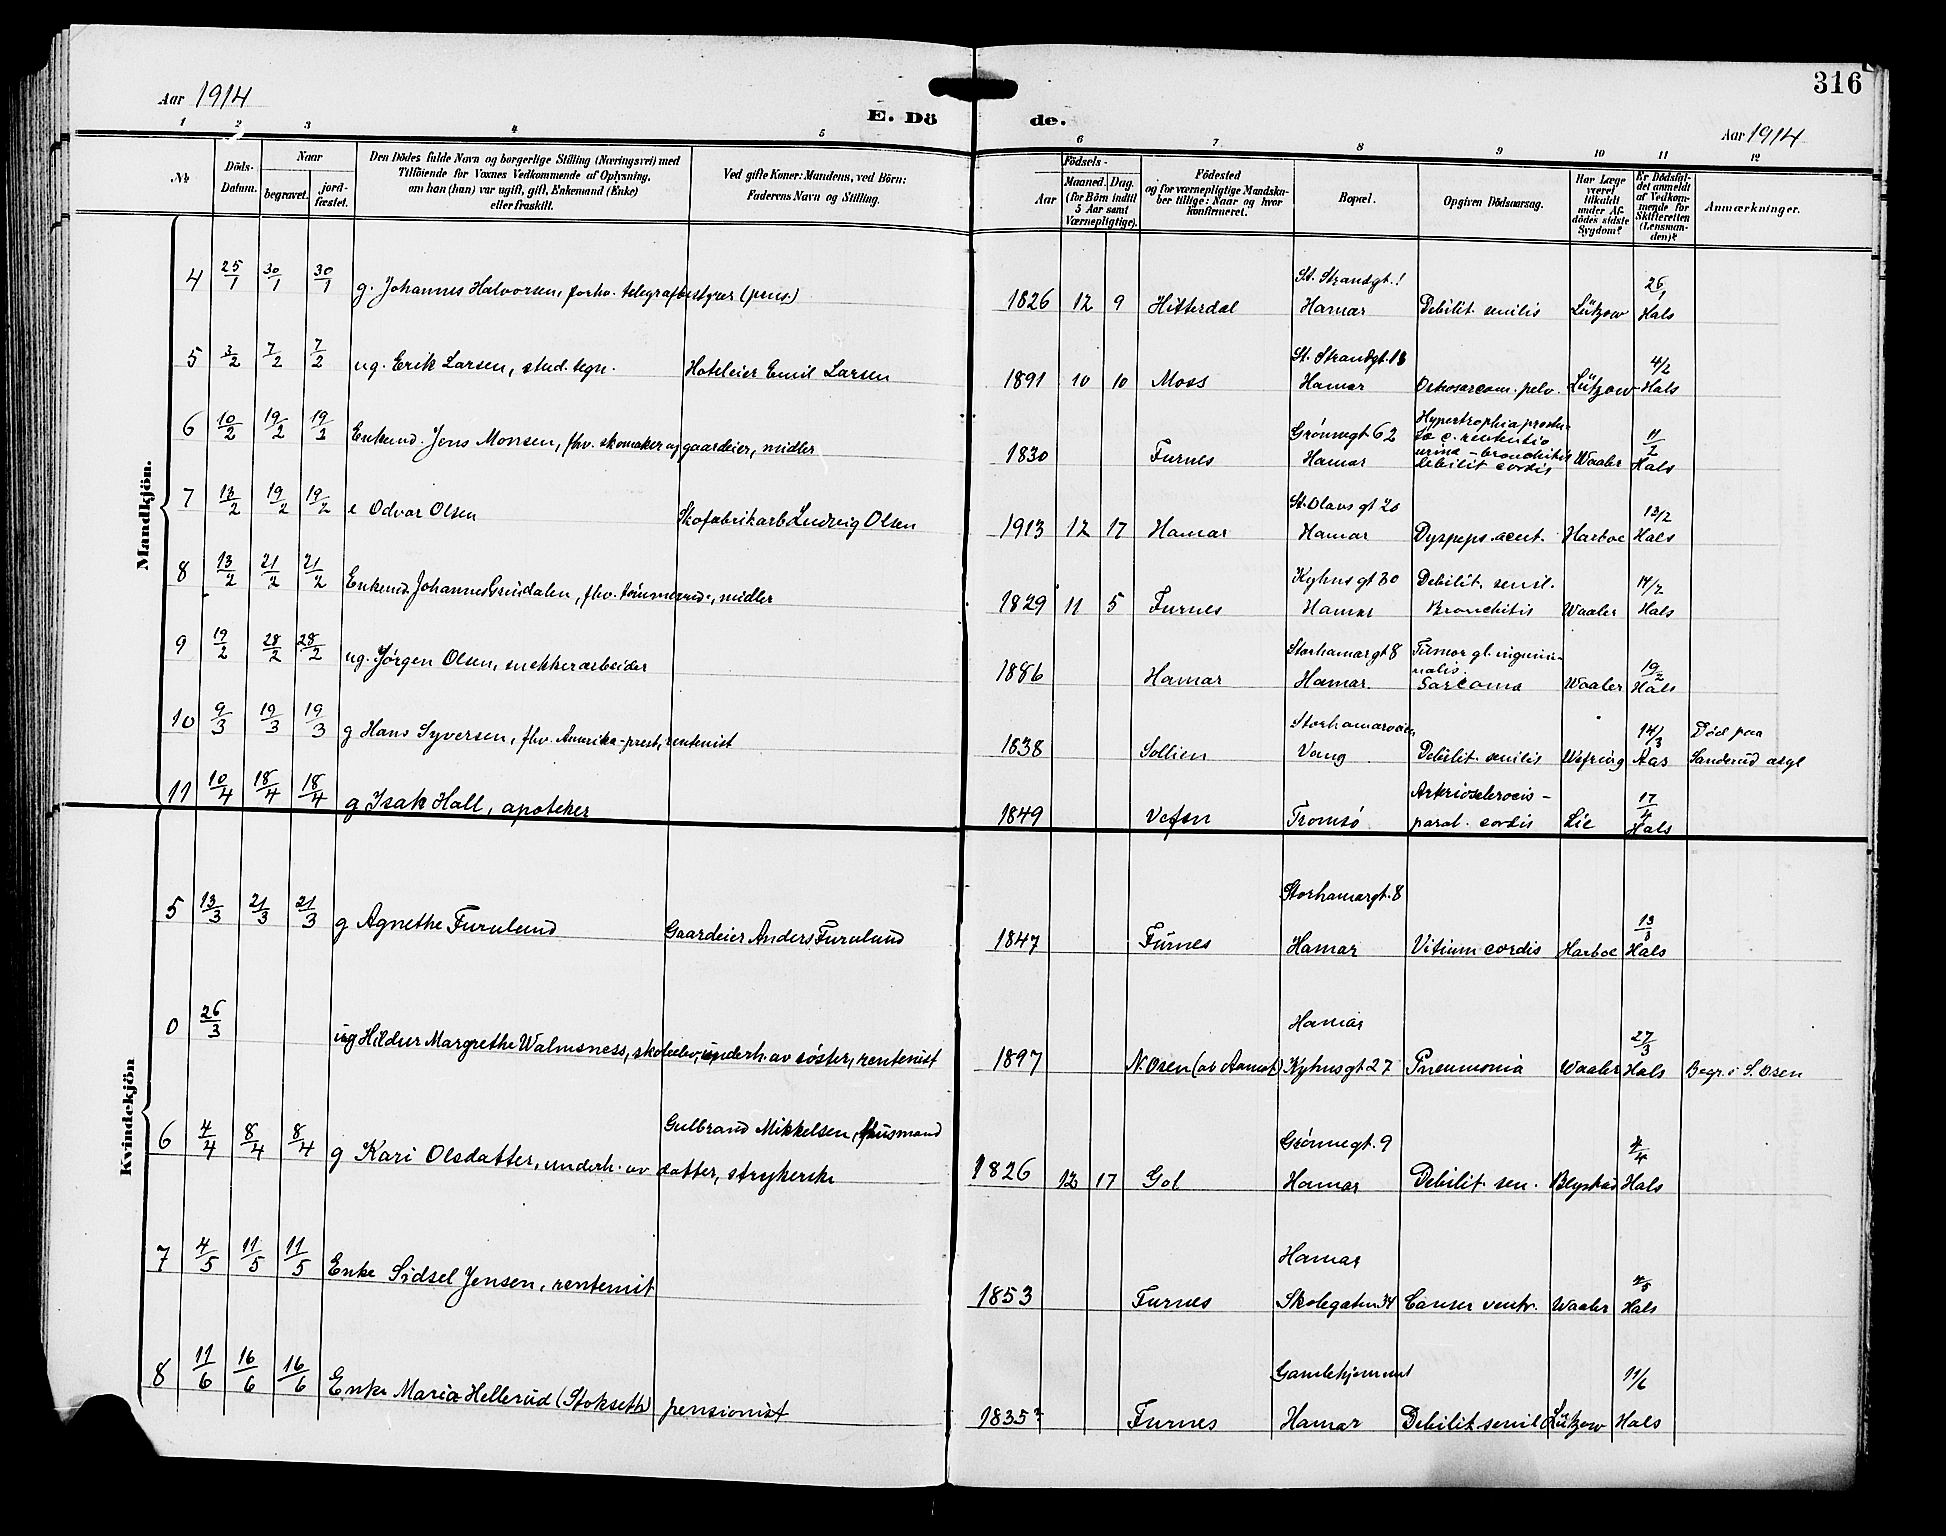 316
Aar 1914
E. Dö de.
Aar 1914
1 2 3 4 5 6 7 8 9 10 11 12
№
Döds-Datum.
Naar
begravet.
jord-fæstet.
Den Dödes fulde Navn og borgerlige Stilling (Næringsvei) med
Tilföiende for Voxnes Vedkommende af Oplysning,
om han (hun) var ugift, gift, Enkemand (Enke)
eller fraskilt.
Ved gifte Koner: Mandens, ved Börn:
Faderens Navn og Stilling.
Födsels-
Aar
Maaned. Dag.
(for Börn indtil
5 Aar samt
Værnepligtige).
Födested
og for værnepligtige Mandska-
ber tillige: Naar og hvor
konfirmeret.
Bopæl.
Opgiven Dödsaarsag.
Har Læge
været
tilkaldt
under Af-
dödes sidste
Sygdom?
Er Dödsfal-
det anmeldt
af Vedkom-
mende for
Skifteretten
(Lensman-
den)?
Anmærkninger.
Mandkjön.
4 25/1 30/1 30/1 g. Johannes Halvorsen, forhv. telegrafbestyrer (pens) 1826 12 9 Hitterdal St. Strandgt. 1 Hamar Debilit. senilis Lützow 26/1 Hals
5 3/2 7/2 7/2 ug. Erik Larsen, stud. tegn. Hoteleier Emil Larsen 1891 10 10 Moss St. Strandgt. 13 Hamar Osteosarcom. pelv. Lützow 4/2 Hals
6 10/2 19/2 19/3 Enkemd. Jens Monsen, fhv. skomaker og gaardeier, midler 1830 Furnes Grønnegt 62 Hamar Hypertrophia prosta-tæ c. retentio urinæ - bronchitis Debilit cordis Waaler 11/2 Hals
7 13/2 19/2 19/2 e Odvar Olsen Skofabrikarb Ludvig Olsen 1913 12 17 Hamar St. Olavs gt 20 Hamar Dyspeps. acut. Harboe 13/2 Hals
8 13/2 21/2 21/2 Enkemd. Johannes Svendalen, fhv. tømmermd., midler 1829 11 5 Furnes Kyhns gt 30 Hamar Debilit. senil. Bronchitis Waaler 14/2 Hals
9 19/2 28/2 28/2 ug. Jørgen Olsen, snekkerarbeider 1886 Hamar Storhamargt 8 Hamar. Tumor gl. inguinalis. Sarcoma Waaler 19/2 Hals
10 9/3 19/3 19/3 g Hans Syversen, fhv. Amerika-prest, rentenist 1838 Sollien Storhamarveien Vang Debilit. senilis Wefring 14/3 Aas Død paa Sanderud asyl
11 10/4 18/4 18/4 g Isak Hall, apoteker 1849 Vefsn Tromsø Arteriosclerosis - paral. cordis Lie 17/4 Hals
Kvindekjön
5 13/3 21/3 21/3 g Agnethe Furulund Gaardeier Anders Furulund 1847 Furnes Storhamargt. 8 Hamar Vitium cordis Harboe 13/3 Hals
0 26/3 ug Hildur Margrethe Walmsness, skoleelev, underh. av søster, rentenist 1897 N. Osen (ob Aamot) Hamar Kyhnsgt 27 Pneumonia Waaler 27/3 Hals Begr. i S. Osen
6 4/4 8/4 8/4 g Kari Olsdatter, underh. av datter, strykerske Gulbrand Mikkelsen, husmand 1826 12 17 Gol Grønnegt. 9 Hamar Debilit. sen. Blystad 4/4 Hals
7 4/5 11/5 11/5 Enke Sidsel Jensen, rentenist 1853 Furnes Hamar Skolegaten 34 Cancer ventr. Waaler 4/5 Hals
8 11/6 16/6 16/6 Enke Maria Hellerud (Stokseth) pensionist 1835? Furnes Gamlehjemmet Hamar Debilit. senil Lützow 11/6 Hals